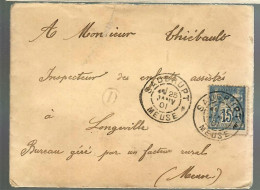 A Monsieur Thiébault
Inspecteur des enfants assistés
à
Longeville
Bureau géré par un facteur rural
(Meuse)
25
JANV
01
MEUSE
15
MEUSE